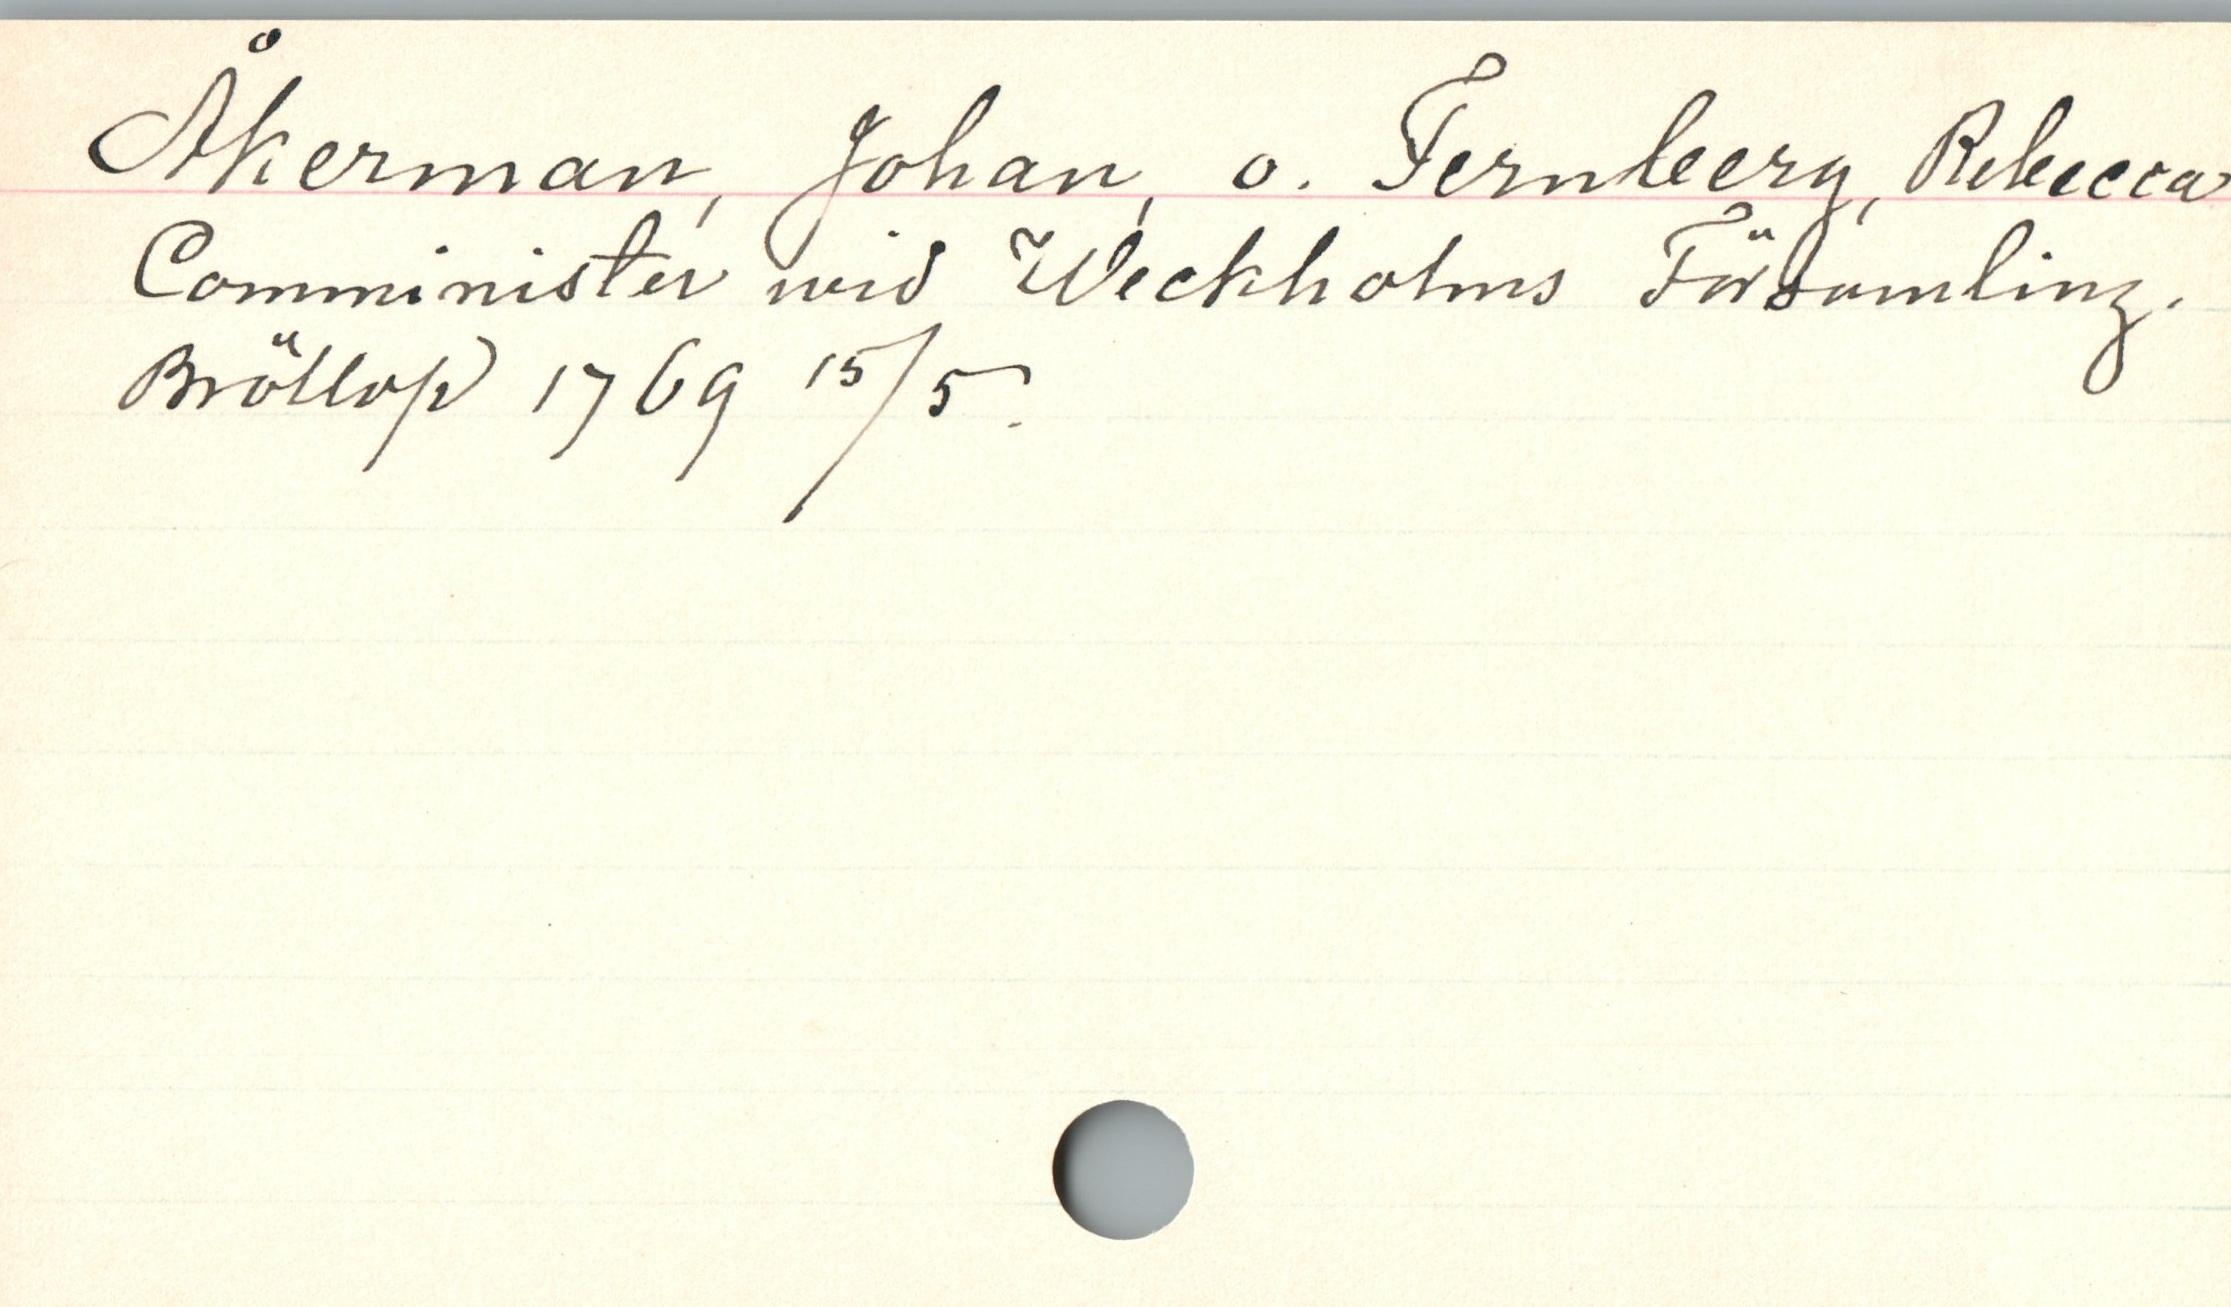 Åkerman, Johan, o. Fernberg, Rebecca
Comminister wid Weckholms Församling.
Bröllop 1769 15/5.